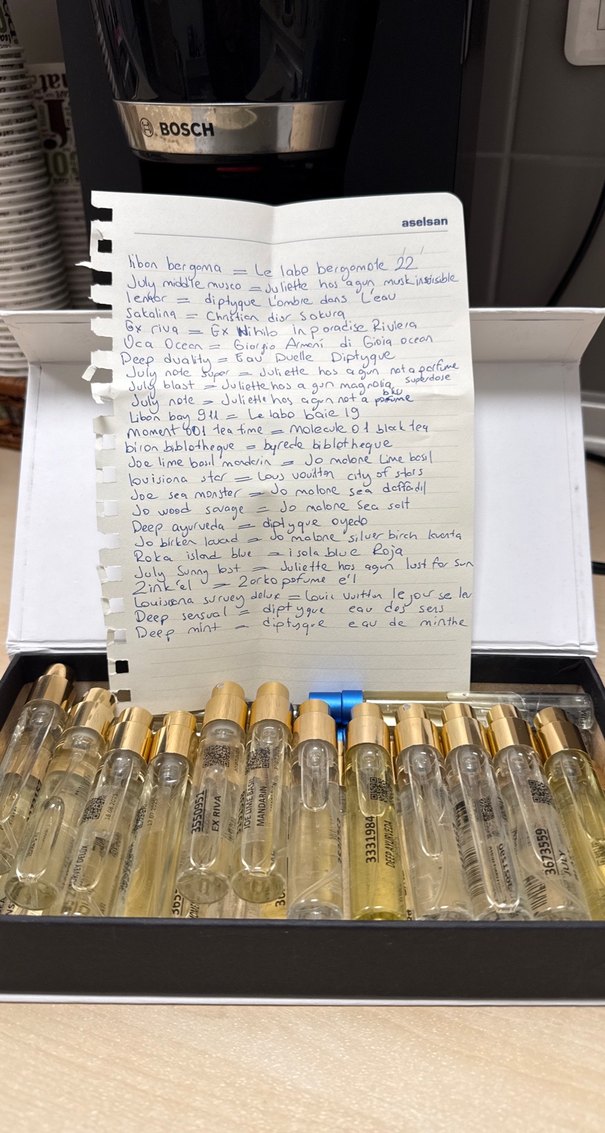 BOSCH
aselsan
libon bergoma = Le labo bergamote 22
July middle musco = Juliette has a gun musk invisible
lenhor = diptyque L'ombre dans L'eau
Sakalina = Christian dior Sakura
Ex riva = Ex Nihilo In paradise Riviera
Oca Ocean = Giorgio Armani di Gioia ocean
Deep duality = Eau Duelle Diptyque
July note super = Juliette has a gun not a parfume superdose
July blast = Juliette has a gun magnolia bliss
July note = Juliette has a gun not a pofume
Libon bay 911 = Le labo baie 19
moment 001 tea time = molecule 01 black tea
biron biblotheque = byrede biblotheque
Joe lime basil mandarin = Jo malone Lime basil
louisiana star = Louis vouitton city of stars
Joe sea monster = Jo malone sea daffadil
Jo wood savage = Jo malone Sea salt
Deep ayurveda = diptyque oyedo
Jo birken lavand = Jo malone silver birch lavanta
Roka island blue = isola blue Roja
July Sunny lost = Juliette has a gun lust for sun
Zink'el = zorko pofume e'l
Louisiana survey delux = Louic vuitton le jour se lev
Deep sensual = diptyque eau des sens
Deep mint = diptyque eau de minthe
3550951
EX RIVA
JOE LIME BASIL
MANDARIN
3331984
DEEP AYURVEDA
3673559
JULY